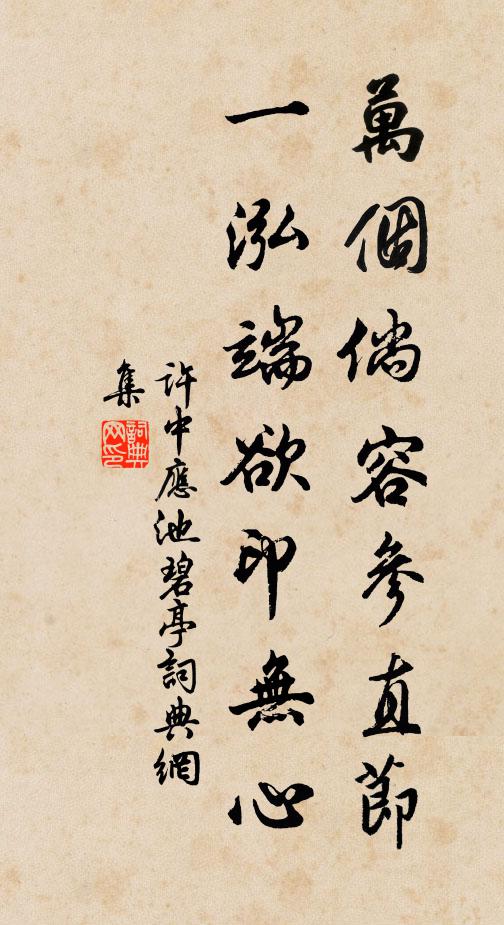 萬個倘容參直節
一泓端欲印無心
許中應池碧亭詞典網
集
詞典
网印